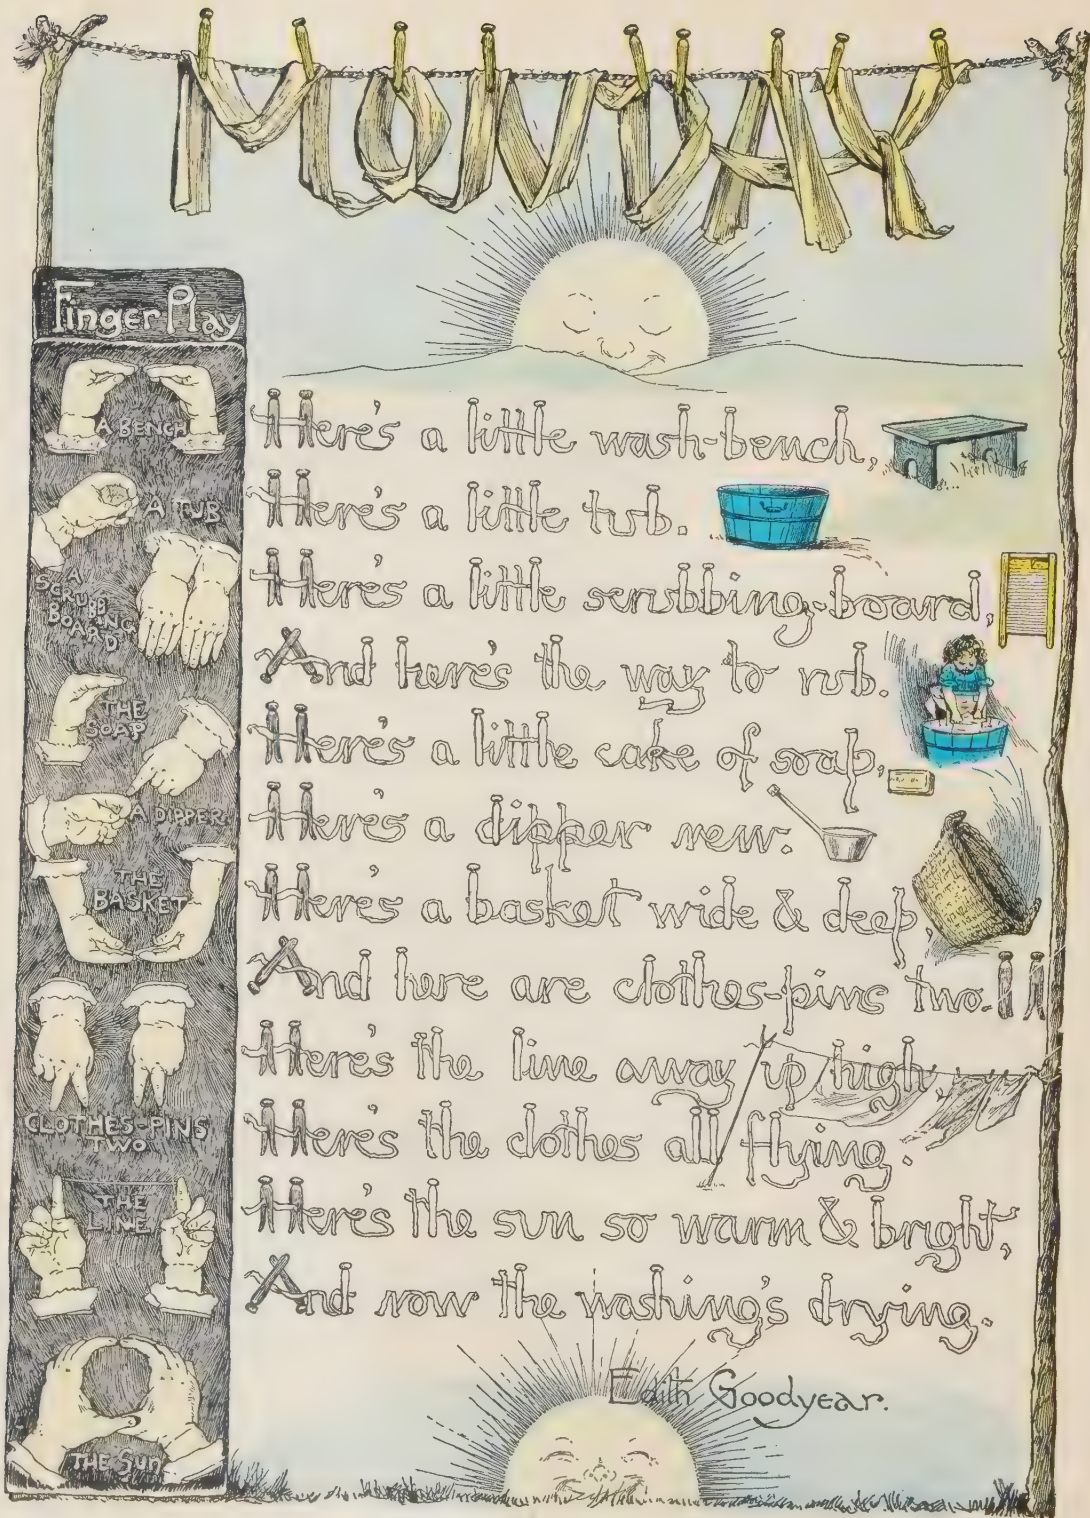 MONDAY
Finger Play
A BENCH
A TUB
A
SCRUBB
ING
BOARD
THE
SOAP
A DIPPER
THE
BASKET
CLOTHES-PINS
TWO
THE
LINE
THE SUN
Here's a little wash-bench,
Here's a little tub.
Here's a little scrubbing-board,
And here's the way to rub.
Here's a little cake of soap,
Here's a dipper new.
Here's a basket wide & deep,
And here are clothes-pins two.
Here's the line away up high,
Here's the clothes all flying.
Here's the sun so warm & bright,
And now the washing's drying.
Edith Goodyear.